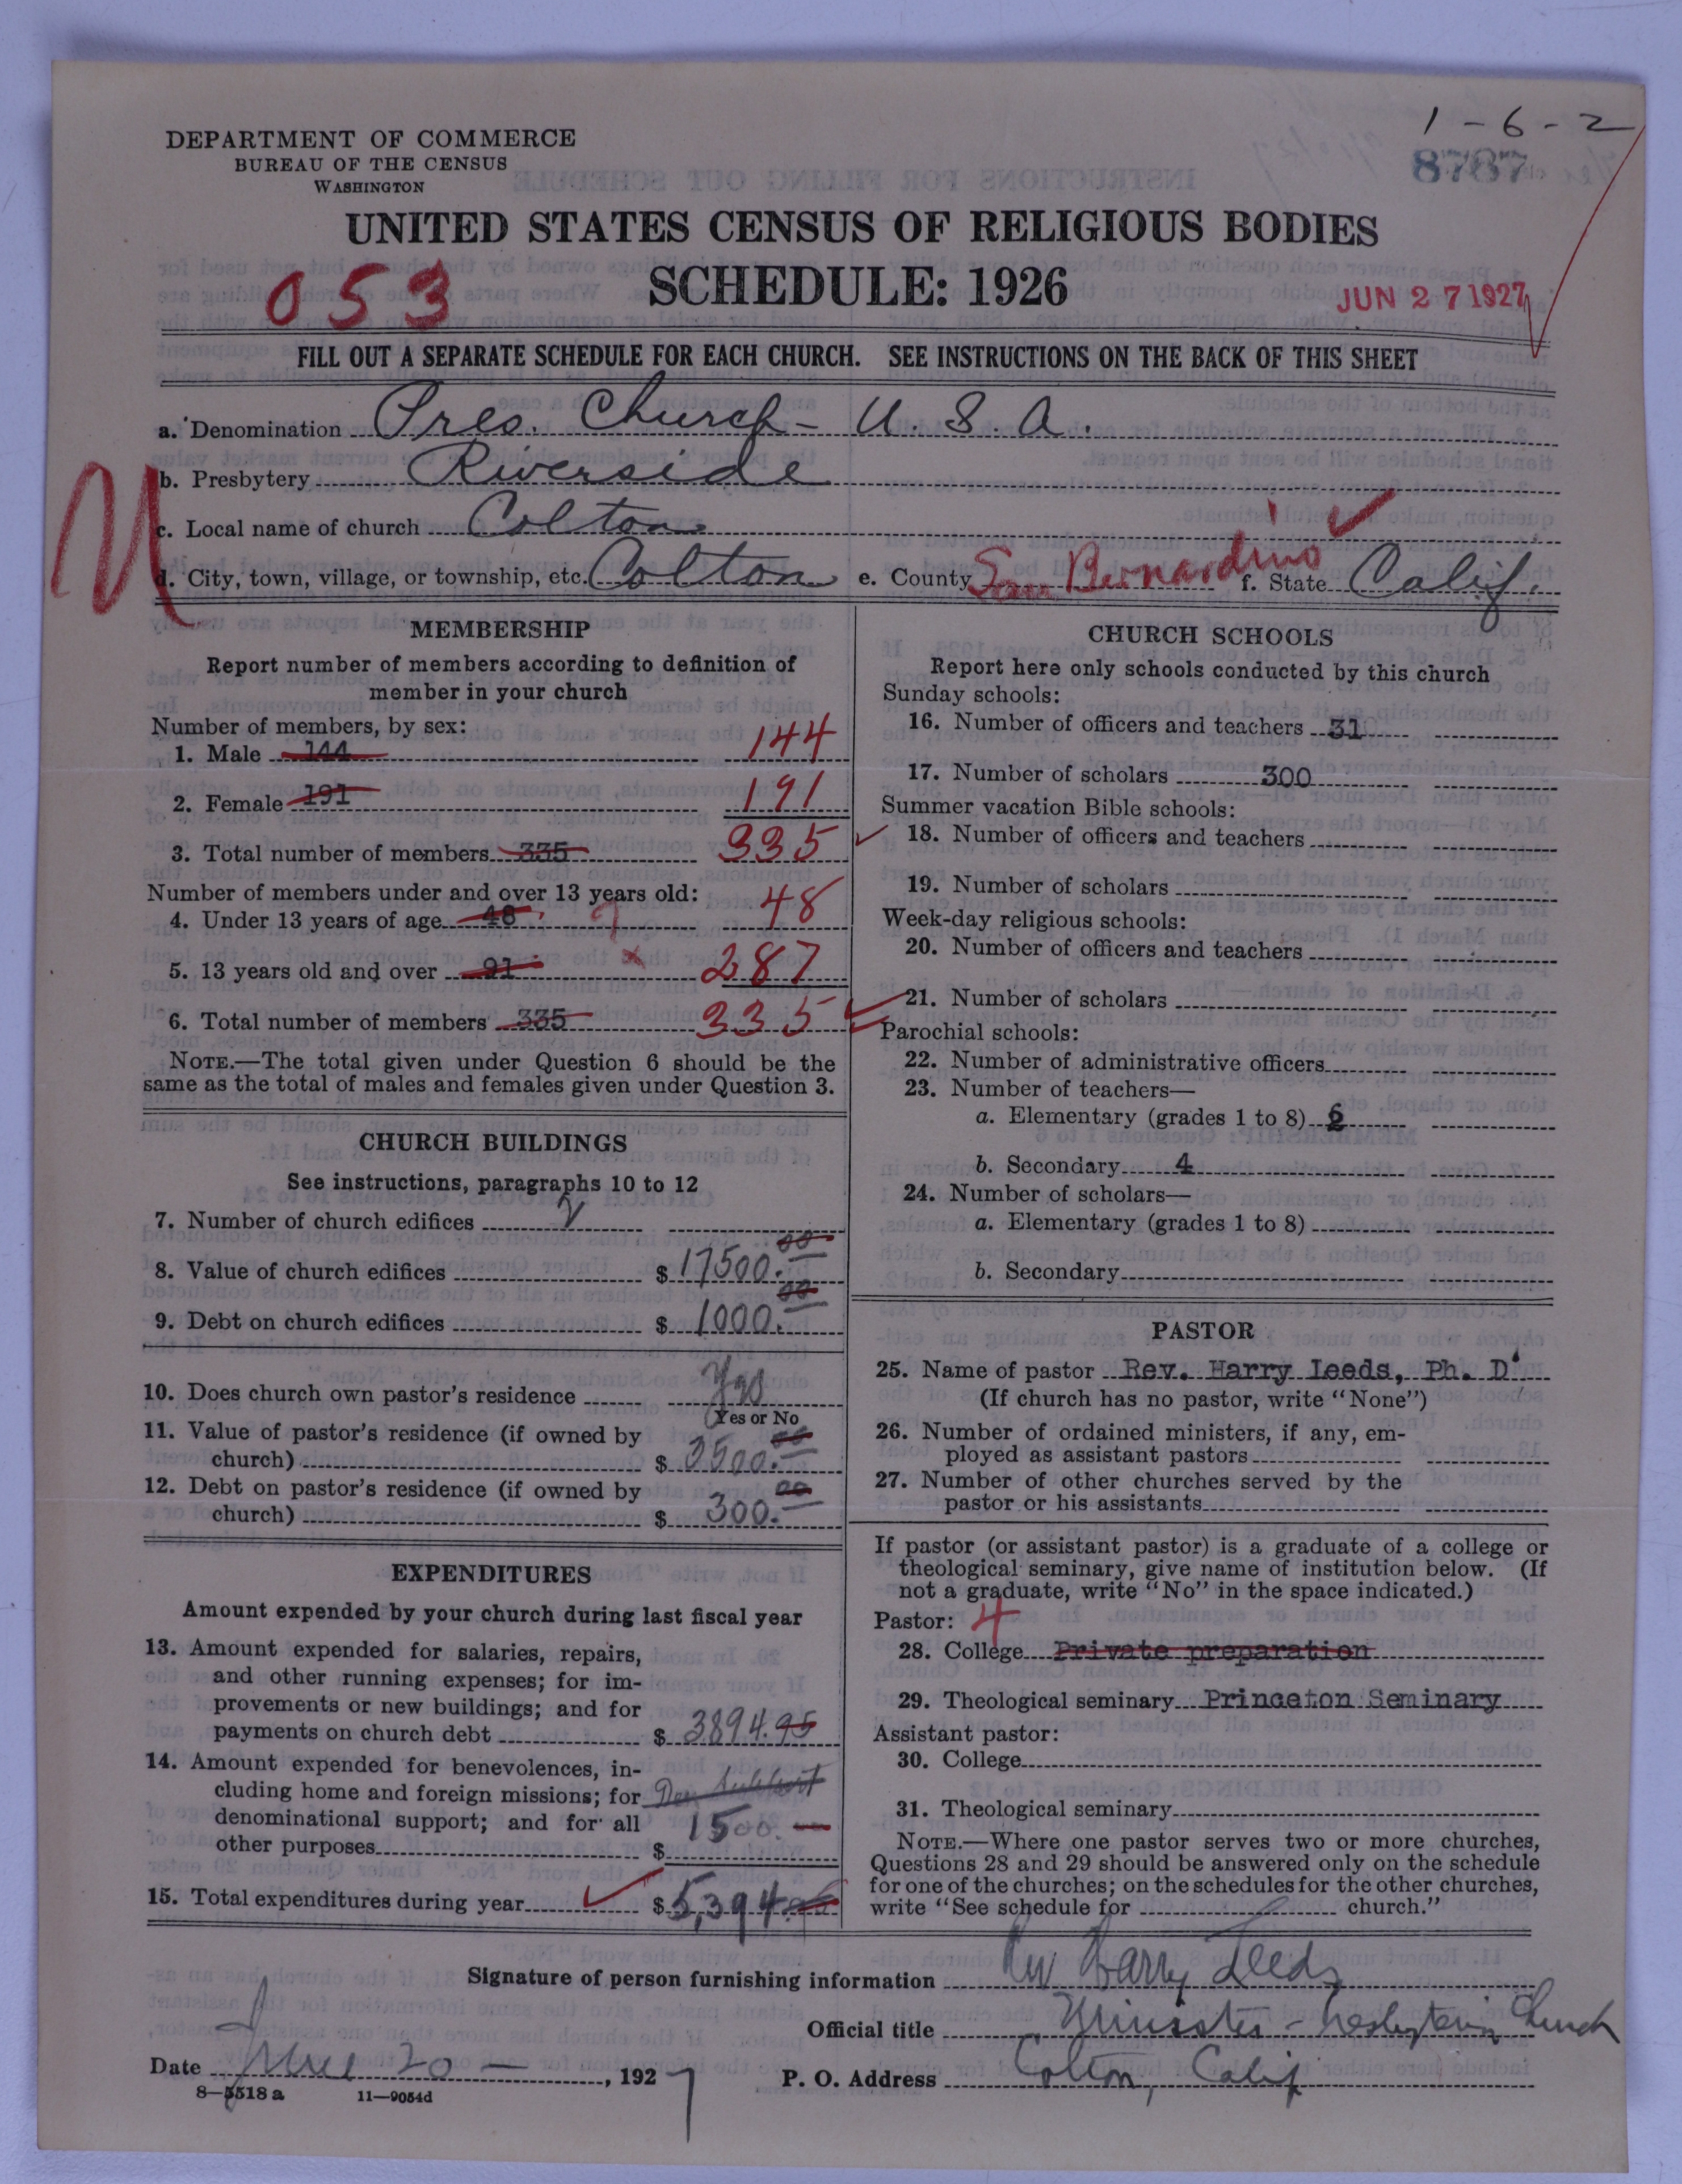 1-6-2
DEPARTMENT OF COMMERCE
BUREAU OF THE CENSUS
WASHINGTON
8787
UNITED STATES CENSUS OF RELIGIOUS BODIES
053
SCHEDULE: 1926
JUN 27 1927
FILL OUT A SEPARATE SCHEDULE FOR EACH CHURCH. SEE INSTRUCTIONS ON THE BACK OF THIS SHEET
a. Denomination Pres. Church - U. S. A.
b. Presbytery Riverside
c. Local name of church Colton
d. City, town, village, or township, etc. Colton e. County San Bernardino f. State Calif.
MEMBERSHIP
Report number of members according to definition of
member in your church
Number of members, by sex:
1. Male 144 144
2. Female 191 191
3. Total number of members 335 335
Number of members under and over 13 years old:
4. Under 13 years of age 48 ? 48
5. 13 years old and over 91 x 287
6. Total number of members 335 335
NOTE.—The total given under Question 6 should be the
same as the total of males and females given under Question 3.
CHURCH BUILDINGS
See instructions, paragraphs 10 to 12
7. Number of church edifices 2
8. Value of church edifices $ 17500.00
9. Debt on church edifices $ 1000.00
10. Does church own pastor's residence Yes
(Yes or No
11. Value of pastor's residence (if owned by
church) $ 3500.00
12. Debt on pastor's residence (if owned by
church) $ 300.00
EXPENDITURES
Amount expended by your church during last fiscal year
13. Amount expended for salaries, repairs,
and other running expenses; for im-
provements or new buildings; and for
payments on church debt $ 3894.95
14. Amount expended for benevolences, in-
cluding home and foreign missions; for Den Support
denominational support; and for all
other purposes $ 1500.—
15. Total expenditures during year $ 5,394.95
CHURCH SCHOOLS
Report here only schools conducted by this church
Sunday schools:
16. Number of officers and teachers 31
17. Number of scholars 300
Summer vacation Bible schools:
18. Number of officers and teachers
19. Number of scholars
Week-day religious schools:
20. Number of officers and teachers
21. Number of scholars
Parochial schools:
22. Number of administrative officers
23. Number of teachers—
a. Elementary (grades 1 to 8) 6
b. Secondary 4
24. Number of scholars—
a. Elementary (grades 1 to 8)
b. Secondary
PASTOR
25. Name of pastor Rev. Harry Leeds, Ph. D.
(If church has no pastor, write "None")
26. Number of ordained ministers, if any, em-
ployed as assistant pastors
27. Number of other churches served by the
pastor or his assistants
If pastor (or assistant pastor) is a graduate of a college or
theological seminary, give name of institution below. (If
not a graduate, write "No" in the space indicated.)
Pastor: 4
28. College Private preparation
29. Theological seminary Princeton Seminary
Assistant pastor:
30. College
31. Theological seminary
NOTE.—Where one pastor serves two or more churches,
Questions 28 and 29 should be answered only on the schedule
for one of the churches; on the schedules for the other churches,
write "See schedule for church."
Signature of person furnishing information Rev Harry Leeds
Official title Minister - Presbyterian Church
Date June 20 —, 1927 P. O. Address Colton, Calif
8—5518 a 11—9054d